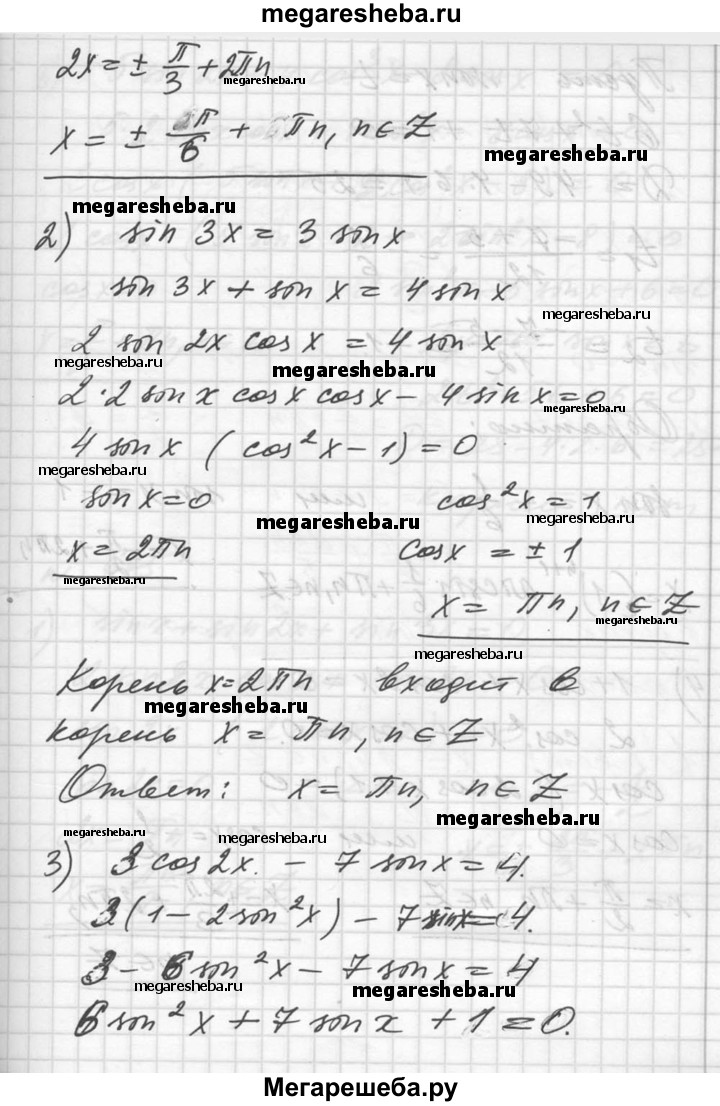 megaresheba.ru
2x = ± π/3 + 2πn
megaresheba.ru
x = ± π/6 + πn, n ∈ Z
megaresheba.ru
megaresheba.ru
2) sin 3x = 3 sin x
sin 3x + sin x = 4 sin x
megaresheba.ru
2 sin 2x cos x = 4 sin x
megaresheba.ru
megaresheba.ru
2·2 sin x cos x cos x − 4 sin x = 0
megaresheba.ru
4 sin x (cos²x − 1) = 0
megaresheba.ru
sin x = 0 cos²x = 1
megaresheba.ru megaresheba.ru
x = 2πn cos x = ± 1
megaresheba.ru
x = πn, n ∈ Z
megaresheba.ru
megaresheba.ru
Корень x = 2πn входит в
megaresheba.ru
корень x = πn, n ∈ Z
Ответ: x = πn, n ∈ Z
megaresheba.ru
megaresheba.ru megaresheba.ru
3) 3 cos 2x. − 7 sin x = 4.
3(1 − 2 sin²x) − 7 sin x = 4.
3 − 6 sin²x − 7 sin x = 4
megaresheba.ru megaresheba.ru
6 sin²x + 7 sin x + 1 = 0.
Мегарешеба.ру